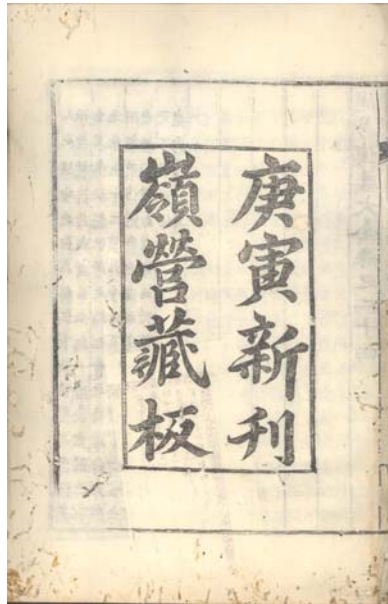 庚寅新刋
嶺營藏板